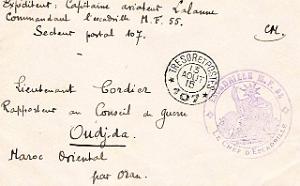 Expéditeur: Capitaine aviateur Lalanne
Commandant l'escadrille M.F. 55.
Secteur postal 107.
CM.
TRESOR ET POSTES
13
AOUT
15
* 107 *
ESCADRILLE M.F. 55
LE CHEF D'ESCADRILLE
Lieutenant Cordier
Rapporteur au Conseil de Guerre
Oudjda
Maroc Oriental
par Oran.